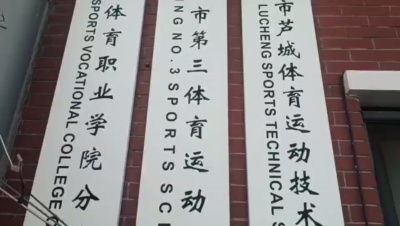 体育职业学院分
SPORTS VOCATIONAL COLLEGE
市第三体育运动
ING NO.3 SPORTS SC
市芦城体育运动技术
LUCHENG SPORTS TECHNICAL S